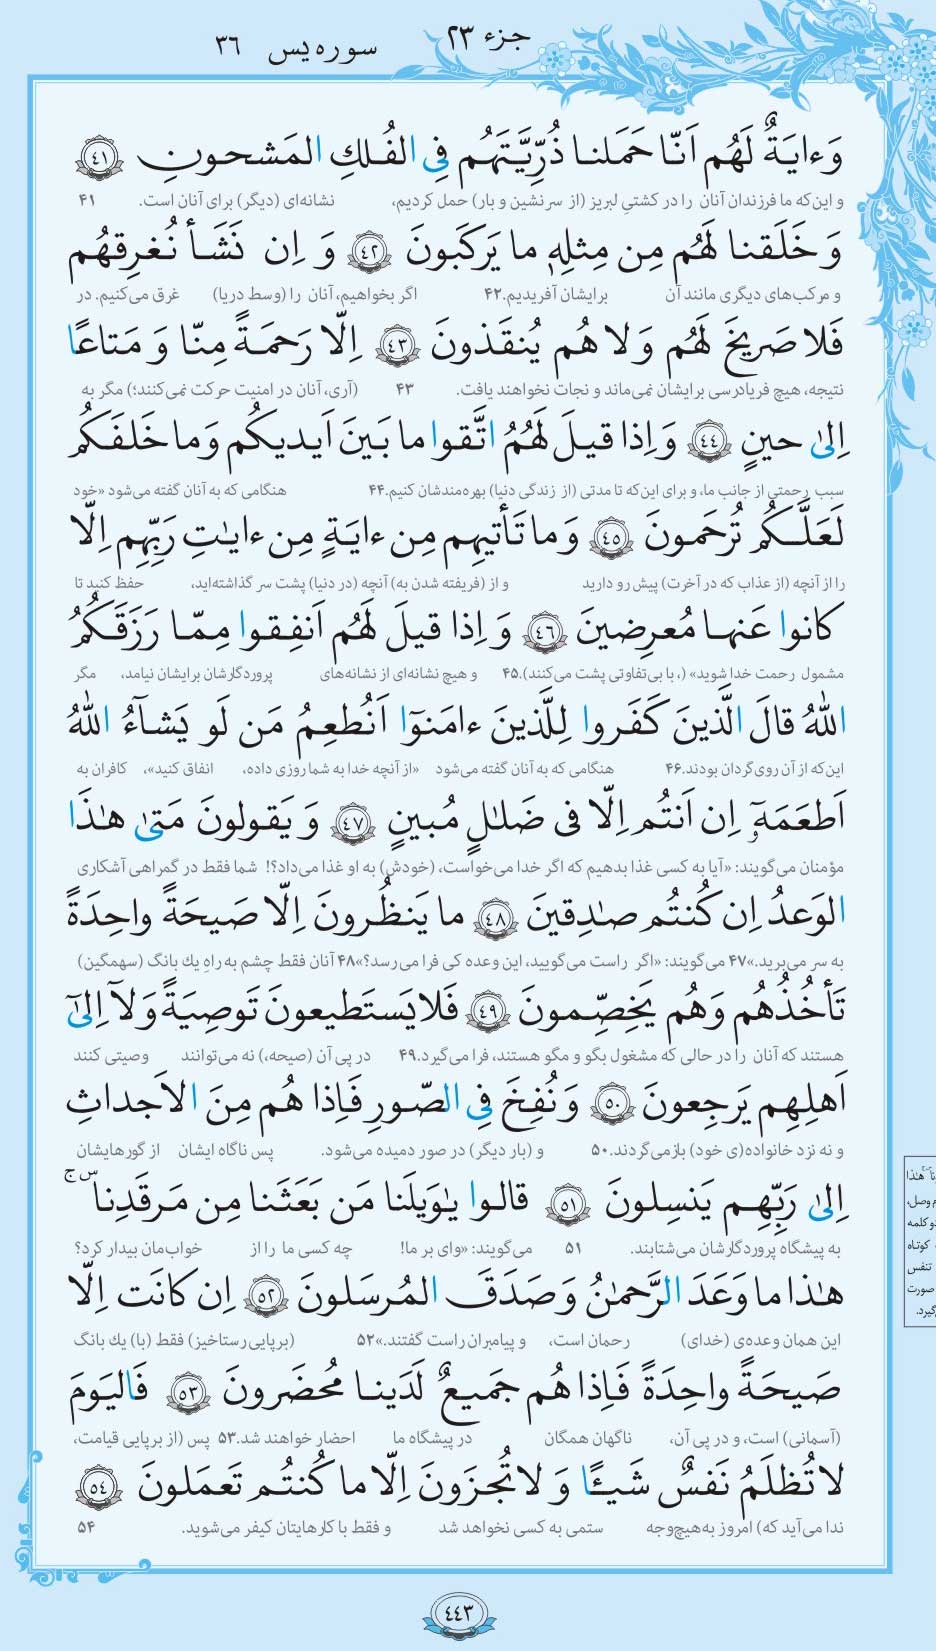 جزء ۲۳ سوره یس ۳۶
وَءایَةٌ لَهُم اَنّا حَمَلنا ذُرِّیَّتَهُم فِی الفُلکِ المَشحونِ ﴿٤١﴾
و این‌که ما فرزندان آنان را در کشتیِ لبریز (از سرنشین و بار) حمل کردیم، نشانه‌ای (دیگر) برای آنان است. ۴۱
وَ خَلَقنا لَهُم مِن مِثلِهٖ ما یَرکَبونَ ﴿٤٢﴾ وَ اِن نَشَأ نُغرِقهُم
و مرکب‌های دیگری مانند آن برایشان آفریدیم.۴۲ اگر بخواهیم، آنان را (وسط دریا) غرق می‌کنیم. در
فَلا صَریخَ لَهُم وَ لا هُم یُنقَذونَ ﴿٤٣﴾ اِلّا رَحمَةً مِنّا وَ مَتاعًا
نتیجه، هیچ فریادرسی برایشان نمی‌ماند و نجات نخواهند یافت. ۴۳ (آری، آنان در امنیت حرکت نمی‌کنند؛) مگر به
اِلیٰ حینٍ ﴿٤٤﴾ وَ اِذا قیلَ لَهُمُ اتَّقوا ما بَینَ اَیدیکُم وَ ما خَلفَکُم
سبب رحمتی از جانب ما، و برای این‌که تا مدتی (از زندگی دنیا) بهره‌مندشان کنیم.۴۴ هنگامی که به آنان گفته می‌شود «خود
لَعَلَّکُم تُرحَمونَ ﴿٤٥﴾ وَ ما تَأتیهِم مِن ءایَةٍ مِن ءایٰتِ رَبِّهِم اِلّا
را از آنچه (از عذاب که در آخرت) پیش رو دارید و از (فریفته شدن به) آنچه (در دنیا) پشت سر گذاشته‌اید، حفظ کنید تا
کانوا عَنها مُعرِضینَ ﴿٤٦﴾ وَ اِذا قیلَ لَهُم اَنفِقوا مِمّا رَزَقَکُمُ
مشمول رحمت خدا شوید» (، با بی‌تفاوتی پشت می‌کنند).۴۵ و هیچ نشانه‌ای از نشانه‌های پروردگارشان برایشان نیامد، مگر
اللّٰهُ قالَ الَّذینَ کَفَروا لِلَّذینَ ءامَنوٓا اَنُطعِمُ مَن لَو یَشآءُ اللّٰهُ
این‌که از آن روی‌گردان بودند.۴۶ هنگامی که به آنان گفته می‌شود «از آنچه خدا به شما روزی داده، انفاق کنید»، کافران به
اَطعَمَهٗٓ اِن اَنتُم اِلّا فی ضَلٰلٍ مُبینٍ ﴿٤٧﴾ وَ یَقولونَ مَتیٰ هٰذَا
مؤمنان می‌گویند: «آیا به کسی غذا بدهیم که اگر خدا می‌خواست، (خودش) به او غذا می‌داد؟! شما فقط در گمراهی آشکاری
الوَعدُ اِن کُنتُم صٰدِقینَ ﴿٤٨﴾ ما یَنظُرونَ اِلّا صَیحَةً واحِدَةً
به سر می‌برید.»۴۷ می‌گویند: «اگر راست می‌گویید، این وعده کی فرا می‌رسد؟»۴۸ آنان فقط چشم به راهِ یك بانگ (سهمگین)
تَأخُذُهُم وَ هُم یَخِصِّمونَ ﴿٤٩﴾ فَلا یَستَطیعونَ تَوصِیَةً وَ لآ اِلیٰٓ
هستند که آنان را در حالی که مشغول بگو و مگو هستند، فرا می‌گیرد.۴۹ در پی آن (صیحه،) نه می‌توانند وصیتی کنند
اَهلِهِم یَرجِعونَ ﴿٥٠﴾ وَ نُفِخَ فِی الصّورِ فَاِذا هُم مِنَ الاَجداثِ
و نه نزد خانواده(ی خود) بازمی‌گردند.۵۰ و (بار دیگر) در صور دمیده می‌شود. پس ناگاه ایشان از گورهایشان
اِلیٰ رَبِّهِم یَنسِلونَ ﴿٥١﴾ قالوا یٰوَیلَنا مَن بَعَثَنا مِن مَرقَدِنا س ج
به پیشگاه پروردگارشان می‌شتابند. ۵۱ می‌گویند: «وای بر ما! چه کسی ما را از خواب‌مان بیدار کرد؟
هٰذا ما وَعَدَ الرَّحمٰنُ وَ صَدَقَ المُرسَلونَ ﴿٥٢﴾ اِن کانَت اِلّا
این همان وعده‌ی (خدای) رحمان است، و پیامبران راست گفتند.»۵۲ (برپایی رستاخیز) فقط (با) یك بانگ
صَیحَةً واحِدَةً فَاِذا هُم جَمیعٌ لَدَینا مُحضَرونَ ﴿٥٣﴾ فَالیَومَ
(آسمانی) است، و در پی آن، ناگهان همگان در پیشگاه ما احضار خواهند شد.۵۳ پس (از برپایی قیامت،
لا تُظلَمُ نَفسٌ شَیـًٔا وَ لا تُجزَونَ اِلّا ما کُنتُم تَعمَلونَ ﴿٥٤﴾
ندا می‌آید که) امروز به‌هیچ‌وجه ستمی به کسی نخواهد شد و فقط با کارهایتان کیفر می‌شوید. ۵۴
هٰذا
م وصل،
دو کلمه
کوتاه
تنفس
صورت
گیرد.
٤٤٣